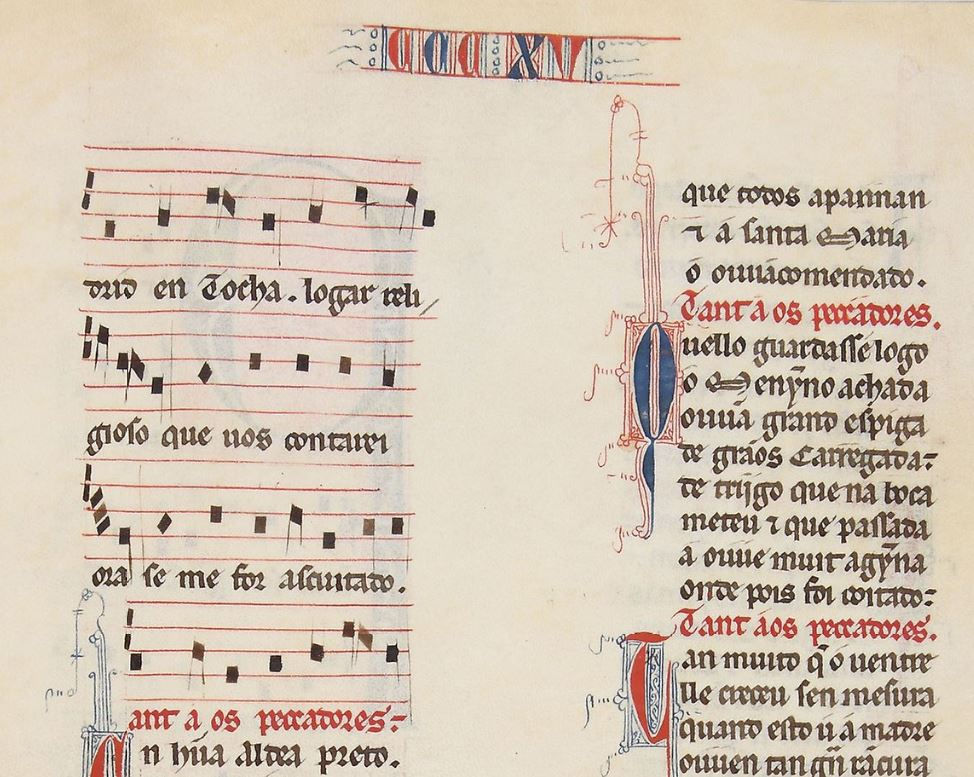 CCCXV
drid en Tocha. logar reli/
gioso que uos contarei
ora se me for ascuitado.
Tant a os peccadores:-
En hũa aldea preto.
que todos aparinan
⁊ a santa Maria
o ouuiacomendado.
Tant a os peccadores.
Quello guardasse logo
o Menỹno achada
ouuia grand espiga
de grãos Carregada:-
de trijgo que na boca
meteu ⁊ que passada
a ouue muit agỹna
onde pois foi coitado:-
Tant aos peccadores.
Tan muito q̄ o uentre
lle creceu sen mesura
quando esto u a madre
ouuen tan gñ rãcura